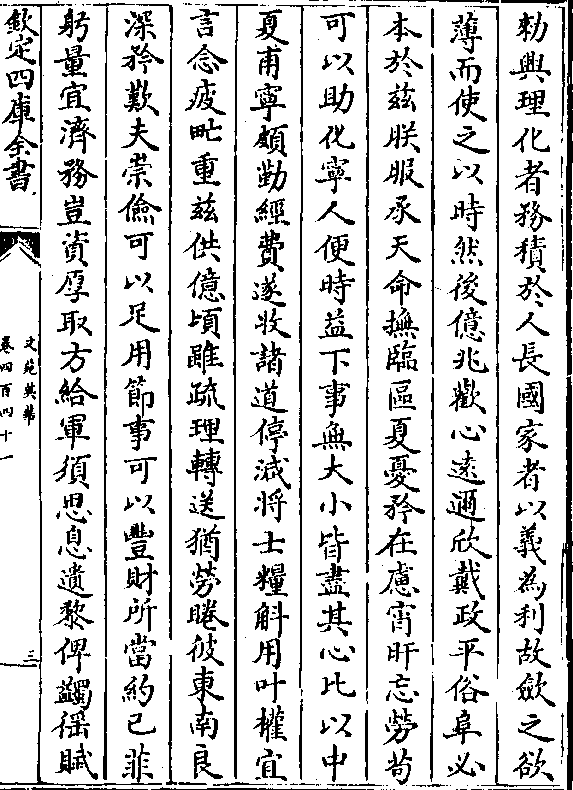 勅興理化者務積於人長國家者以義為利故斂之欲
薄而使之以時然後億兆歡心遠邇欣戴政平俗阜必
本於兹朕服承天命撫臨區夏憂矜在慮宵旰忘勞苟
可以助化寧人便時益下事無大小皆盡其心比以中
夏甫寧頗勤經費遂收諸道停減将士糧斛用叶權宜
言念疲甿重兹供億頃雖疏理轉送猶勞睠彼東南良
深矜歎夫崇儉可以足用節事可以豐財所當約己菲
躬量宜濟務豈資厚取方給軍須思息遺黎俾蠲徭賦
欽定四庫全書
文苑英華
卷四百四十一
三